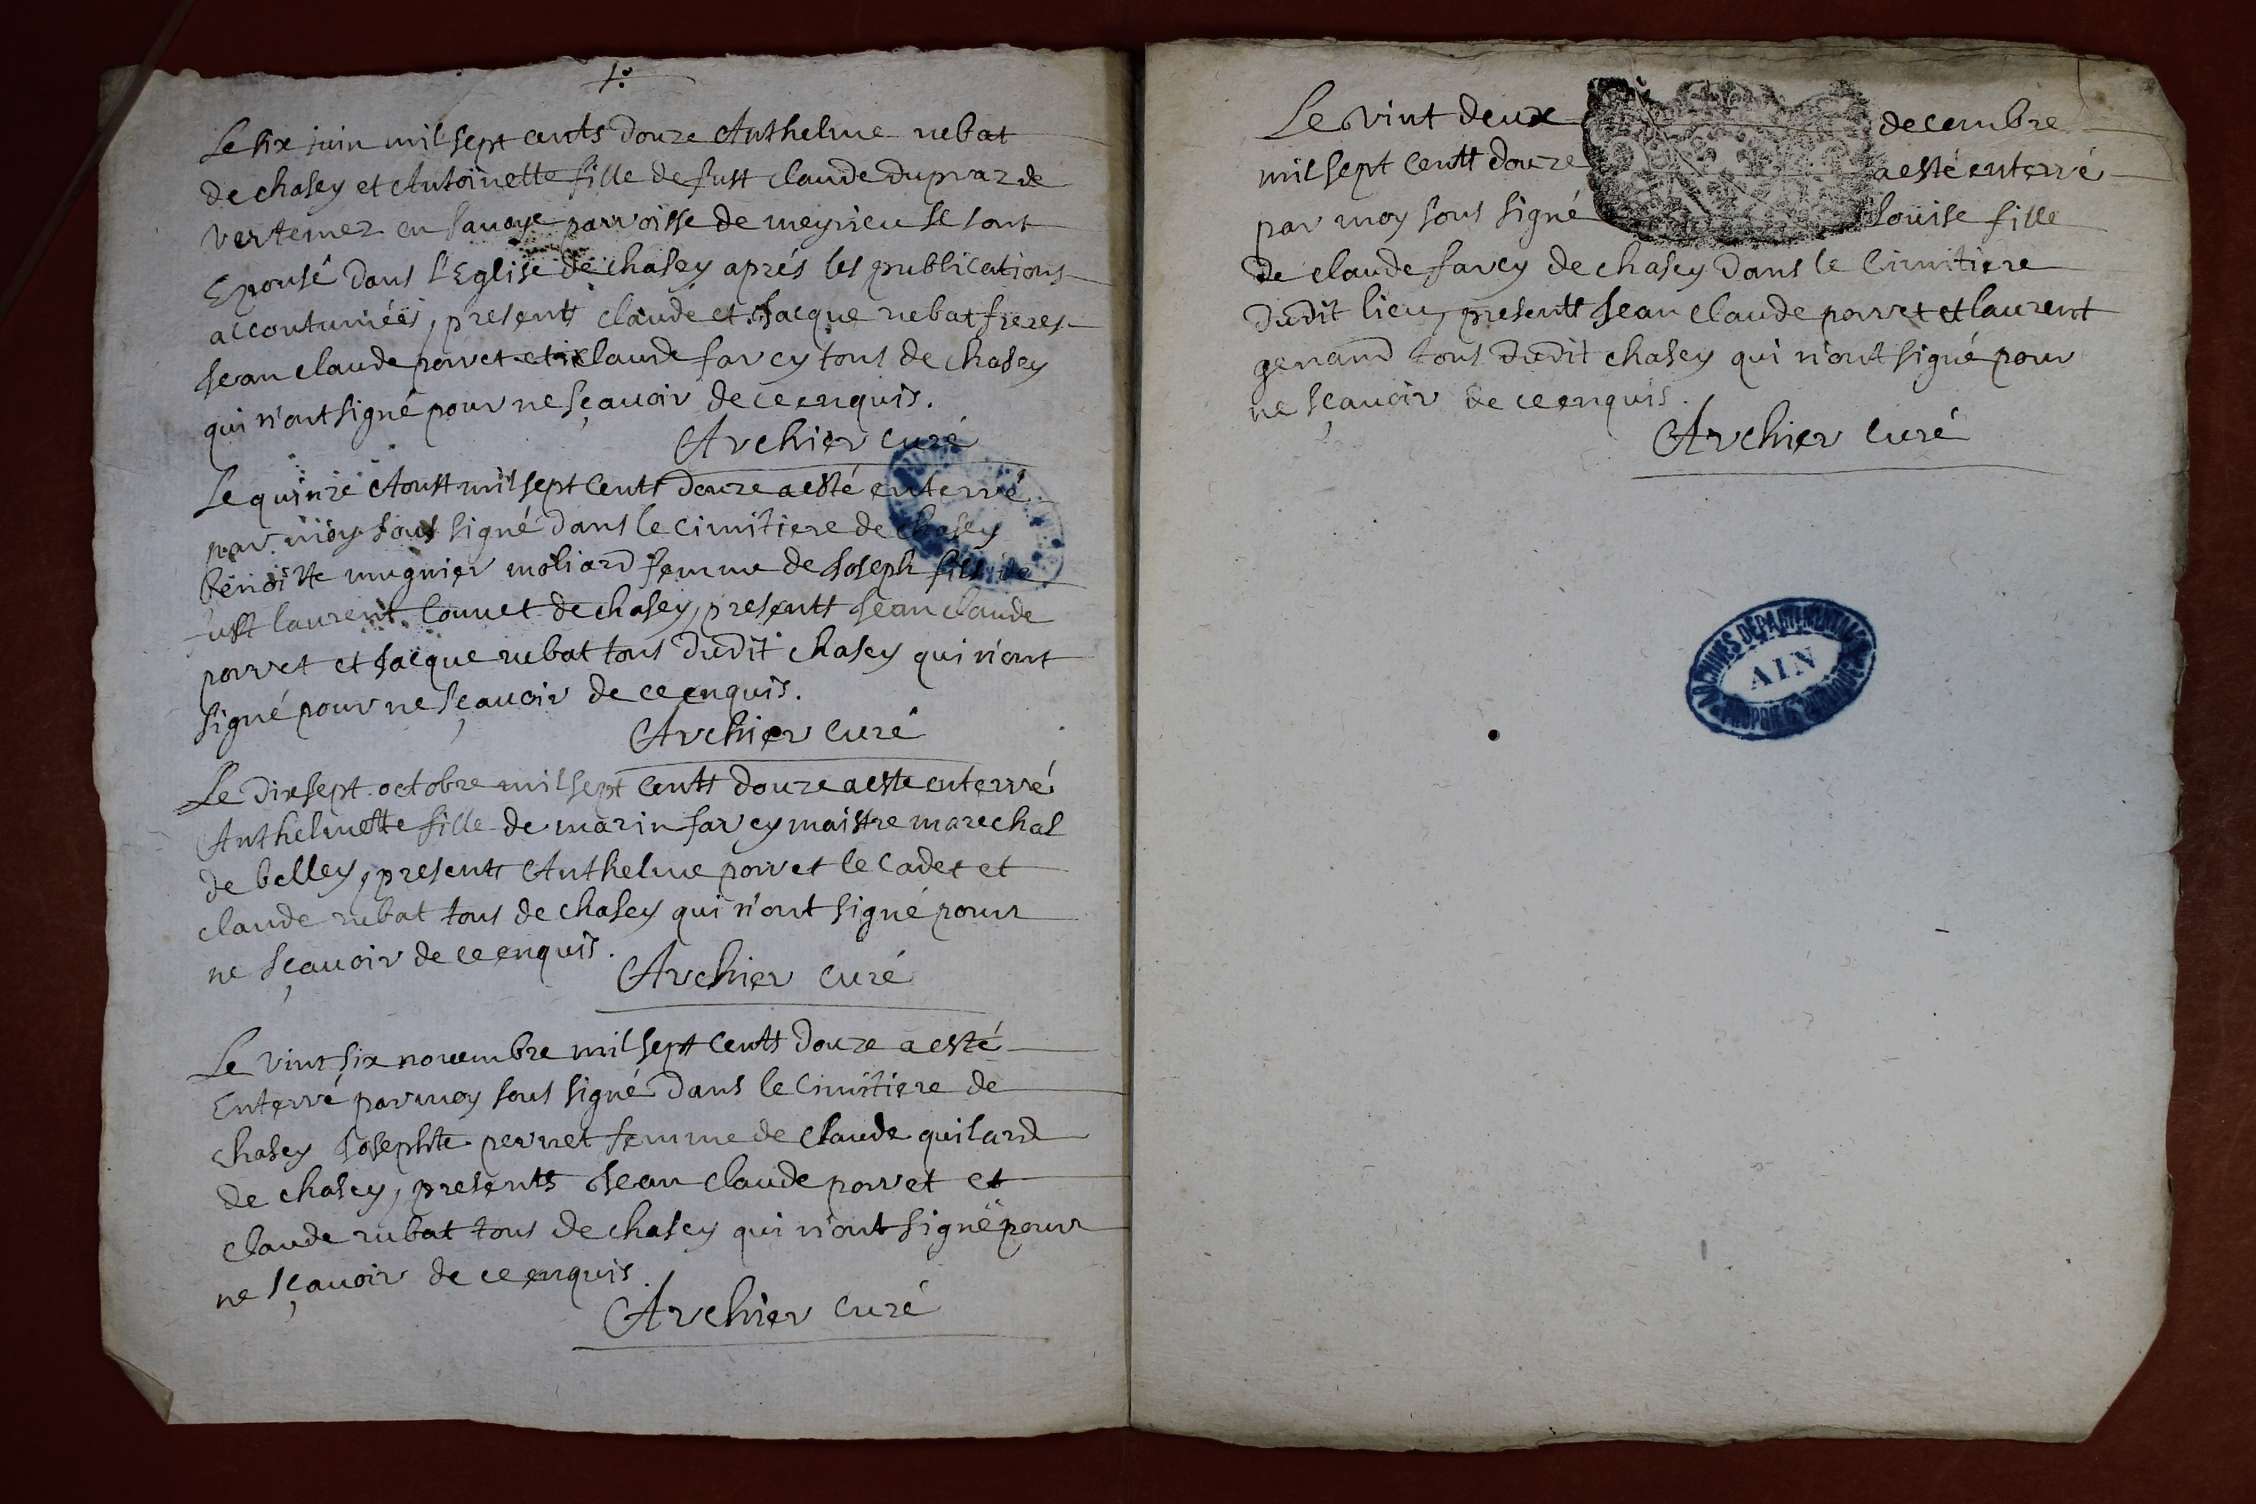 1.°
Le six juin mil sept cents douze Anthelme rubat
de chasey et Antoinette fille de fust claude dupraz de
vertemez en Savoye parroisse de meyrieu se sont
Epousé dans l'Eglise de chasey aprés les publications
accoutuméés, presents claude et Jacque rubat freres
Jean claude porret et claude farcy tous de chasey
qui n'ont signé pour ne sçavoir de ce enquis.
Archier curé
Le quinze Aoust mil sept cents douze a esté enterré
par moy sous signé dans le cimitiere de chasey
benoitte mugnier moliard femme de Joseph fils de
fust laurent Connet de chasey, presents Jean claude
porret et Jacque rubat tous dudit chasey qui n'ont
signé pour ne sçavoir de ce enquis.
Archier curé
Le dix sept octobre mil sept cents douze a este enterré
Anthelmette fille de marin farcy maistre marechal
de belley, presents Anthelme porret le cadet et
claude rubat tous de chasey qui n'ont signé pour
ne sçavoir de ce enquis.
Archier curé
Le vint six novembre mil sept cents douze a esté
Enterré par moy sous signé dans le cimitiere de
chasey Josephte perret femme de claude quilard
de chasey, presents Jean claude porret et
claude rubat tous de chasey qui n'ont signé pour
ne sçavoir de ce enquis.
Archier curé
Le vint deux decembre
mil sept cents douze a esté enterré
par moy sous signé Louise fille
de claude farcy de chasey dans le Cimitiere
dudit lieu, presents Jean claude porret et laurent
genand tous dudit chasey qui n'ont signé pour
ne sçavoir de ce enquis.
Archier curé
ARCHIVES DEPARTEMENTALES
AIN
PROPRIÉTÉ PUBLIQUE